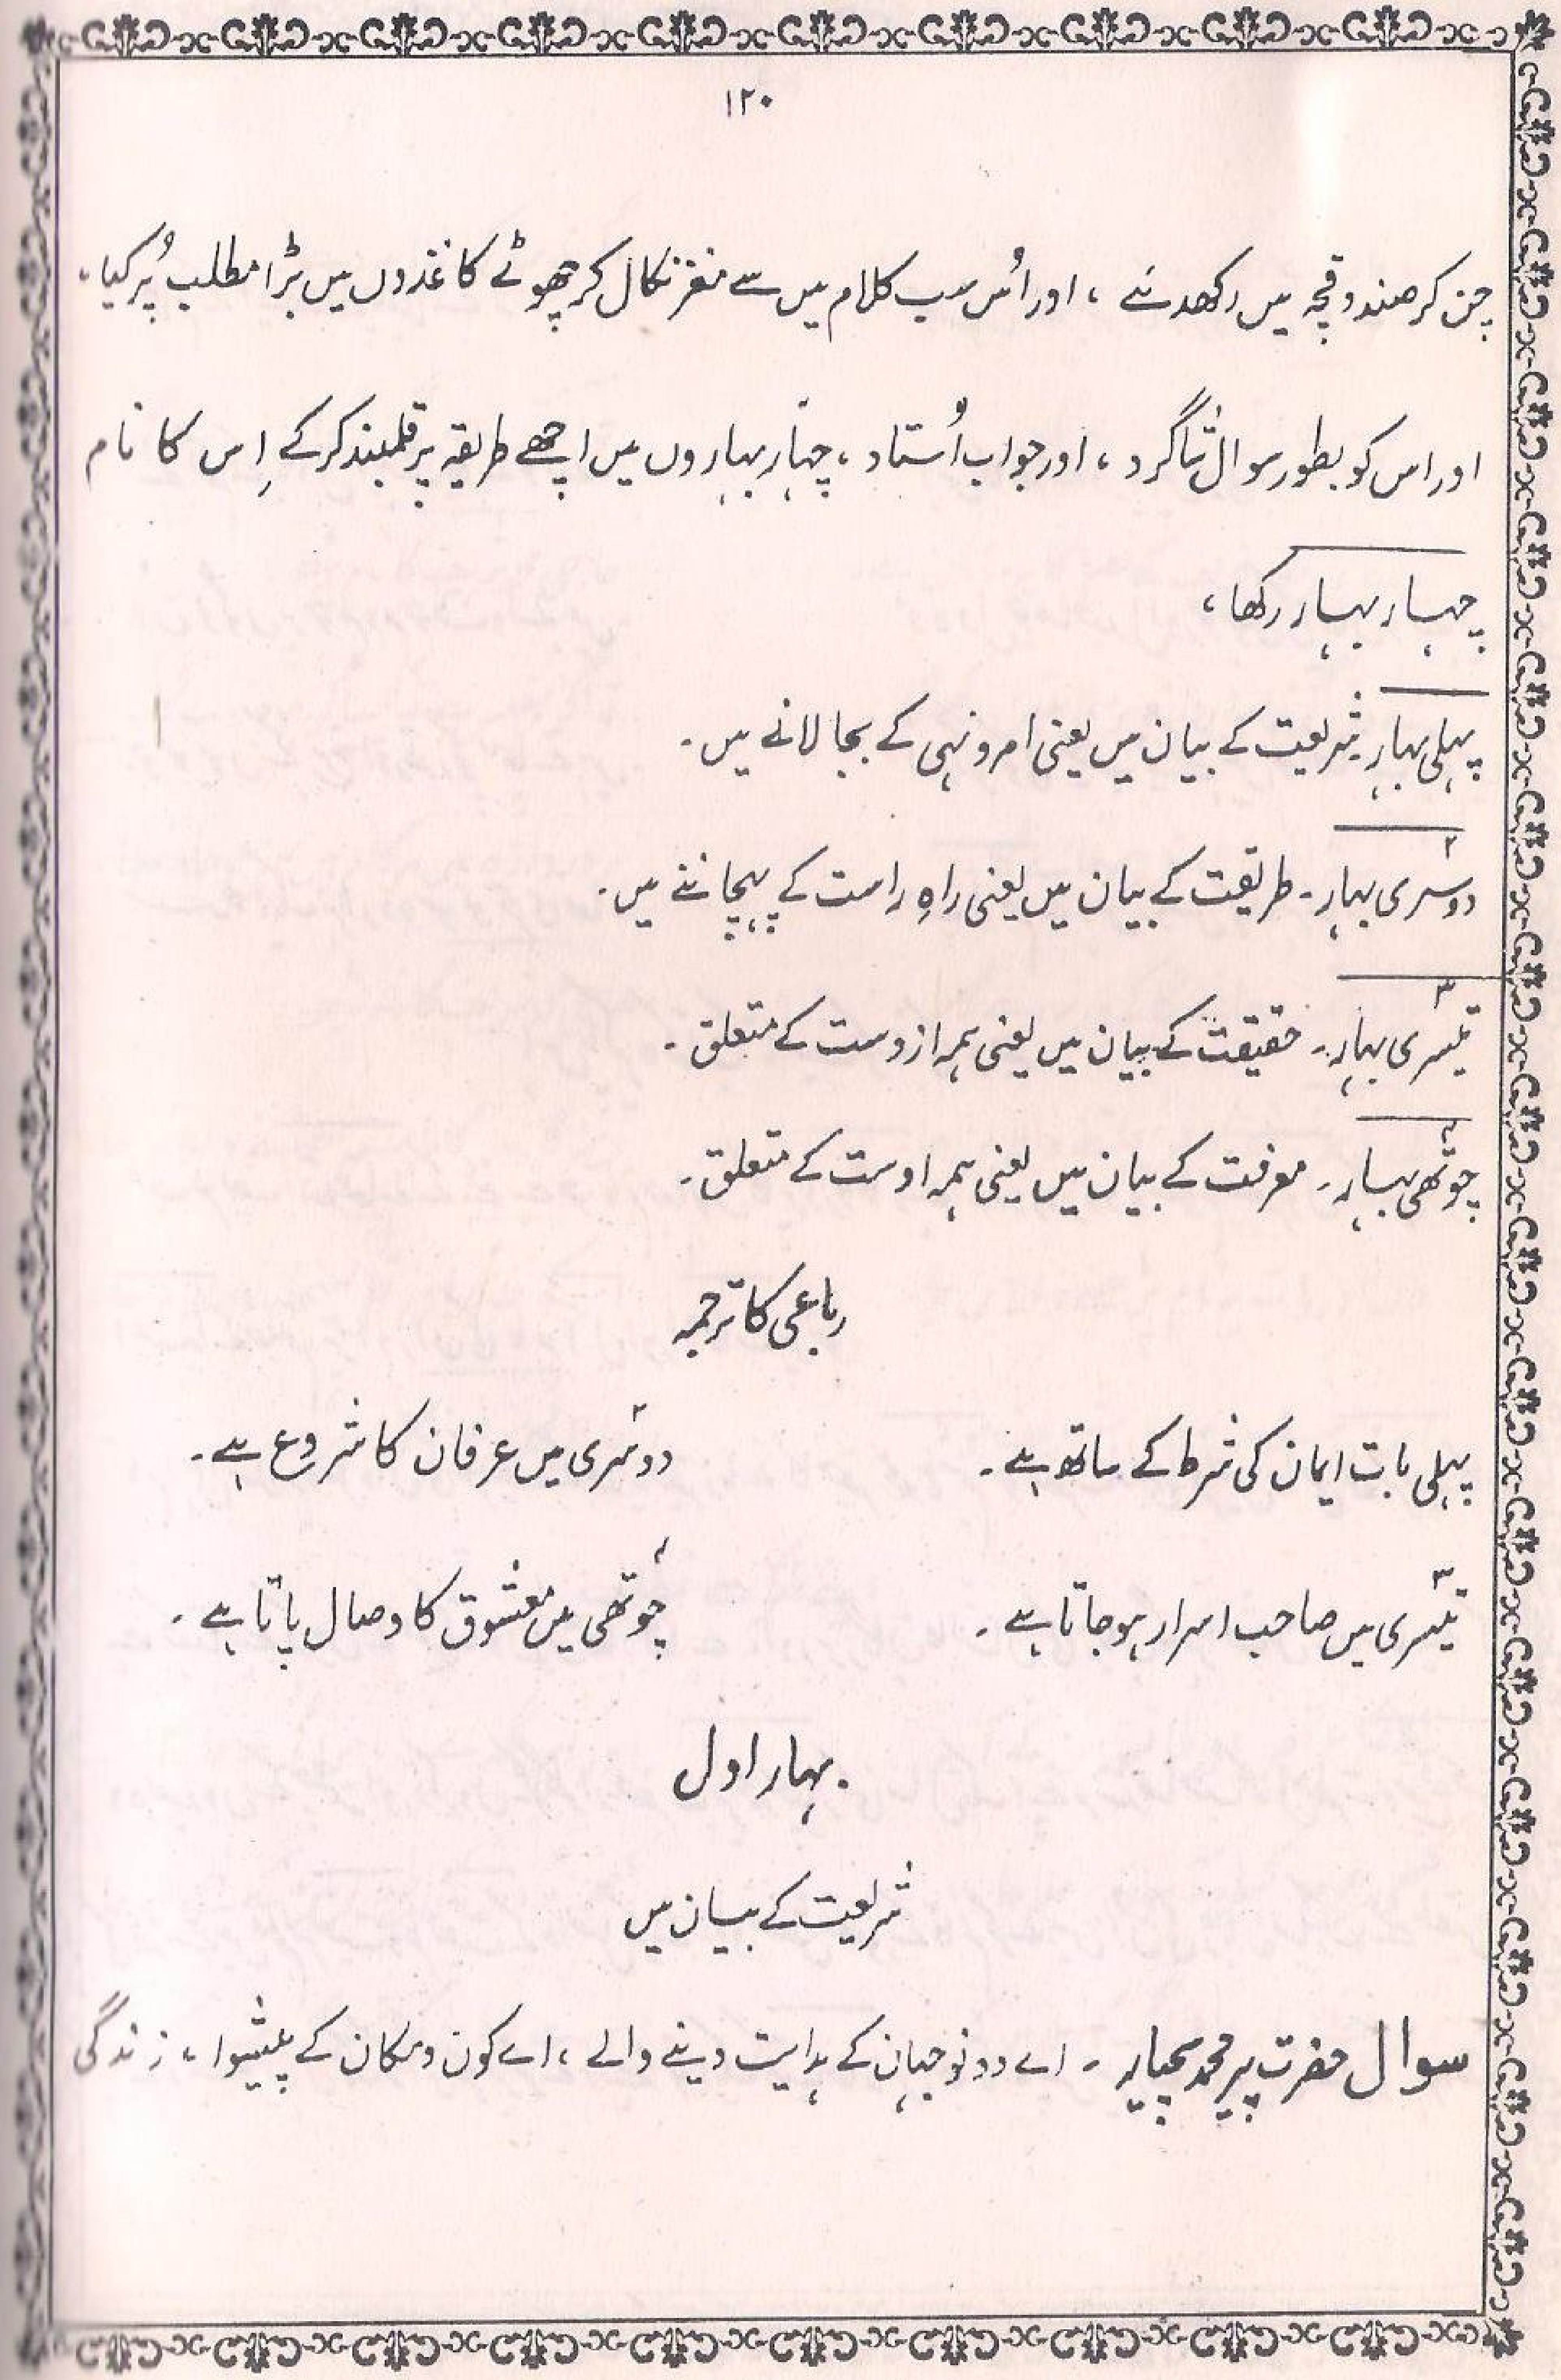 ۱۲۰
چن کر صندوقچہ میں رکھدئے ، اور اُس سب کلام میں سے مغز نکال کر چھوٹے کاغذوں میں بڑا مطلب پُر کیا ،
اور اس کو بطور سوال شاگرد ، اور جواب اُستاد ، چہار بہاروں میں اچھے طریقہ پر قلمبند کر کے اِس کا نام
چہار بہار رکھا ،
پہلی بہار شریعت کے بیان میں یعنی امر و نہی کے بجا لانے میں ۔
دوسری بہار ۔ طریقت کے بیان میں یعنی راہِ راست کے پہچاننے میں ۔
تیسری بہار ۔ حقیقت کے بیان میں یعنی ہمہ ازوست کے متعلق ۔
چوتھی بہار ۔ معرفت کے بیان میں یعنی ہمہ اوست کے متعلق ۔
رباعی کا ترجمہ
پہلی بات ایمان کی شرط کے ساتھ ہے ۔ دوسری میں عرفان کا شروع ہے ۔
تیسری میں صاحب اسرار ہو جاتا ہے ۔ چوتھی میں معشوق کا وصال پاتا ہے ۔
بہار اول
شریعت کے بیان میں
سوال حضرت پیر محمد سچیار ۔ اے دونو جہان کے ہدایت دینے والے ، اے کون و مکان کے پیشوا ، زندگی